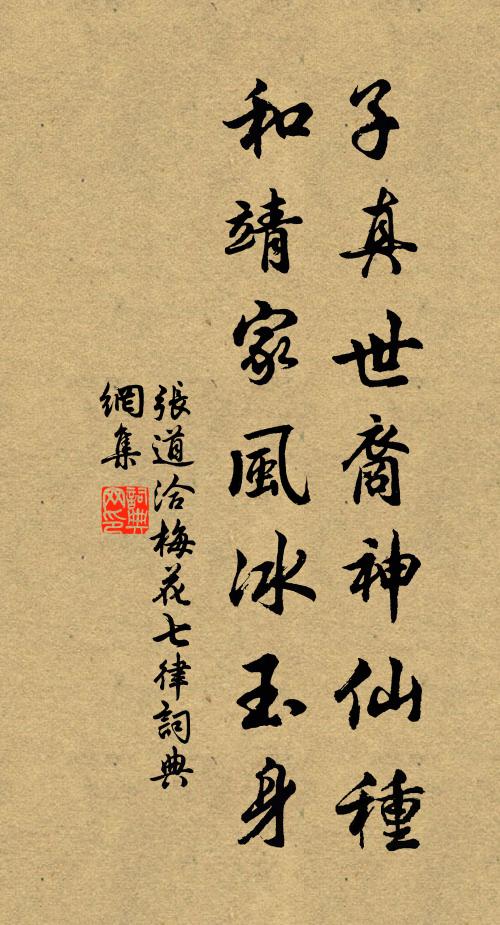 子真世裔神仙種
和靖家風冰玉身
張道洽梅花七律詞典
網集
詞典
网印